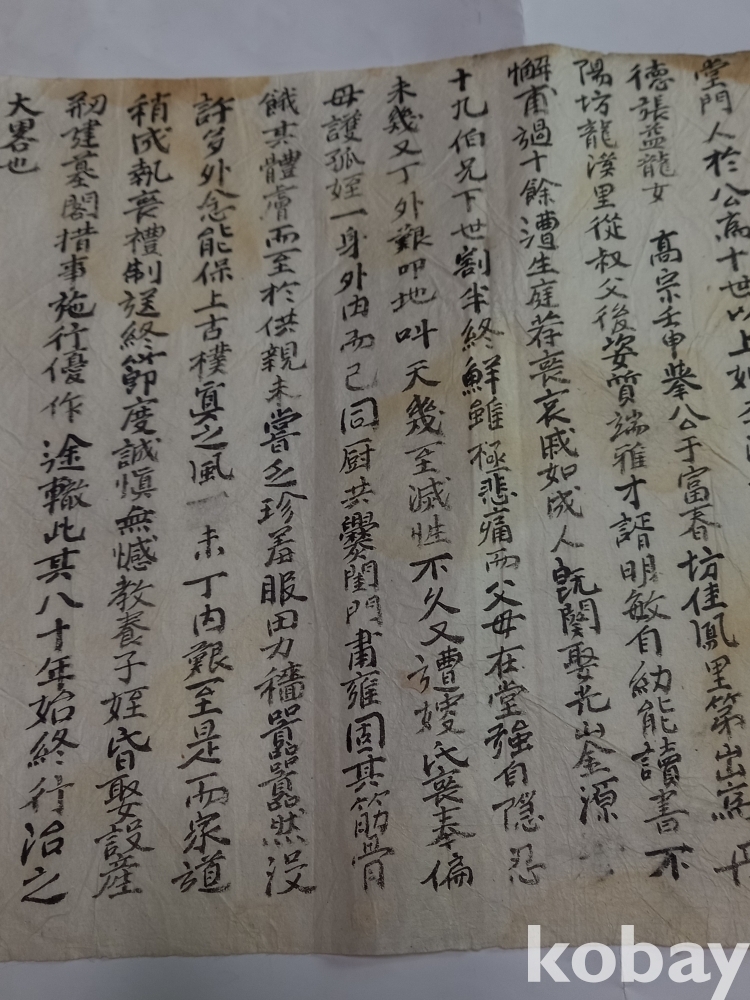 堂門人於公高十世以上
德張益龍女 高宗壬申擧公于富春坊佳鳳里第出爲
陽坊龍漢里從叔父後姿質端雅才諝明敏自幼能讀書不
懈甫過十餘遭生庭荐喪哀戚如成人旣闋娶光山金源
十九伯兄下世割半終鮮雖極悲痛而父母在堂強自隱忍
未幾又丁外艱叩地叫天幾至滅性不久又遭嫂氏喪奉偏
母護孤姪一身外內而已同厨共爨閨門肅雍固其筋骨
餓其體膚而至於供親未嘗乏珍羞服田力穡囂囂然沒
許多外念能保上古樸實之風 未丁內艱至是而家道
稍成執喪禮制送終節度誠愼無憾敎養子姪昏娶設產
刱建墓閣措事施行優作途轍此其八十年始終行治之
大畧也
kobay